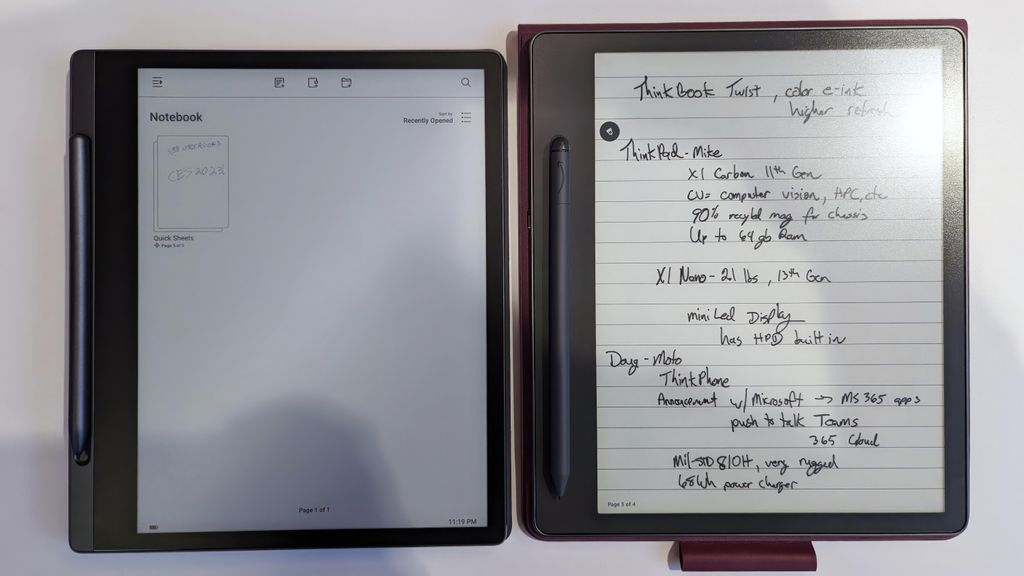 Notebook
Sort by
Recently Opened
CES 2023
Quick Sheets
Page 5 of 5
Page 1 of 1
11:19 PM
ThinkBook Twist, color e-ink
higher refresh
ThinkPad - Mike
X1 Carbon 11th Gen
CV= computer vision, HPC, etc
90% recycld mag for chassis
Up to 64 gb Ram
X1 Nano - 2.1 lbs, 13th Gen
mini Led Display
has HPD built in
Doug - Moto
ThinkPhone
Announcement w/ Microsoft -> MS 365 apps
push to talk Teams
365 Cloud
Mil-STD 810H, very rugged
68Wh power charger
Page 5 of 4